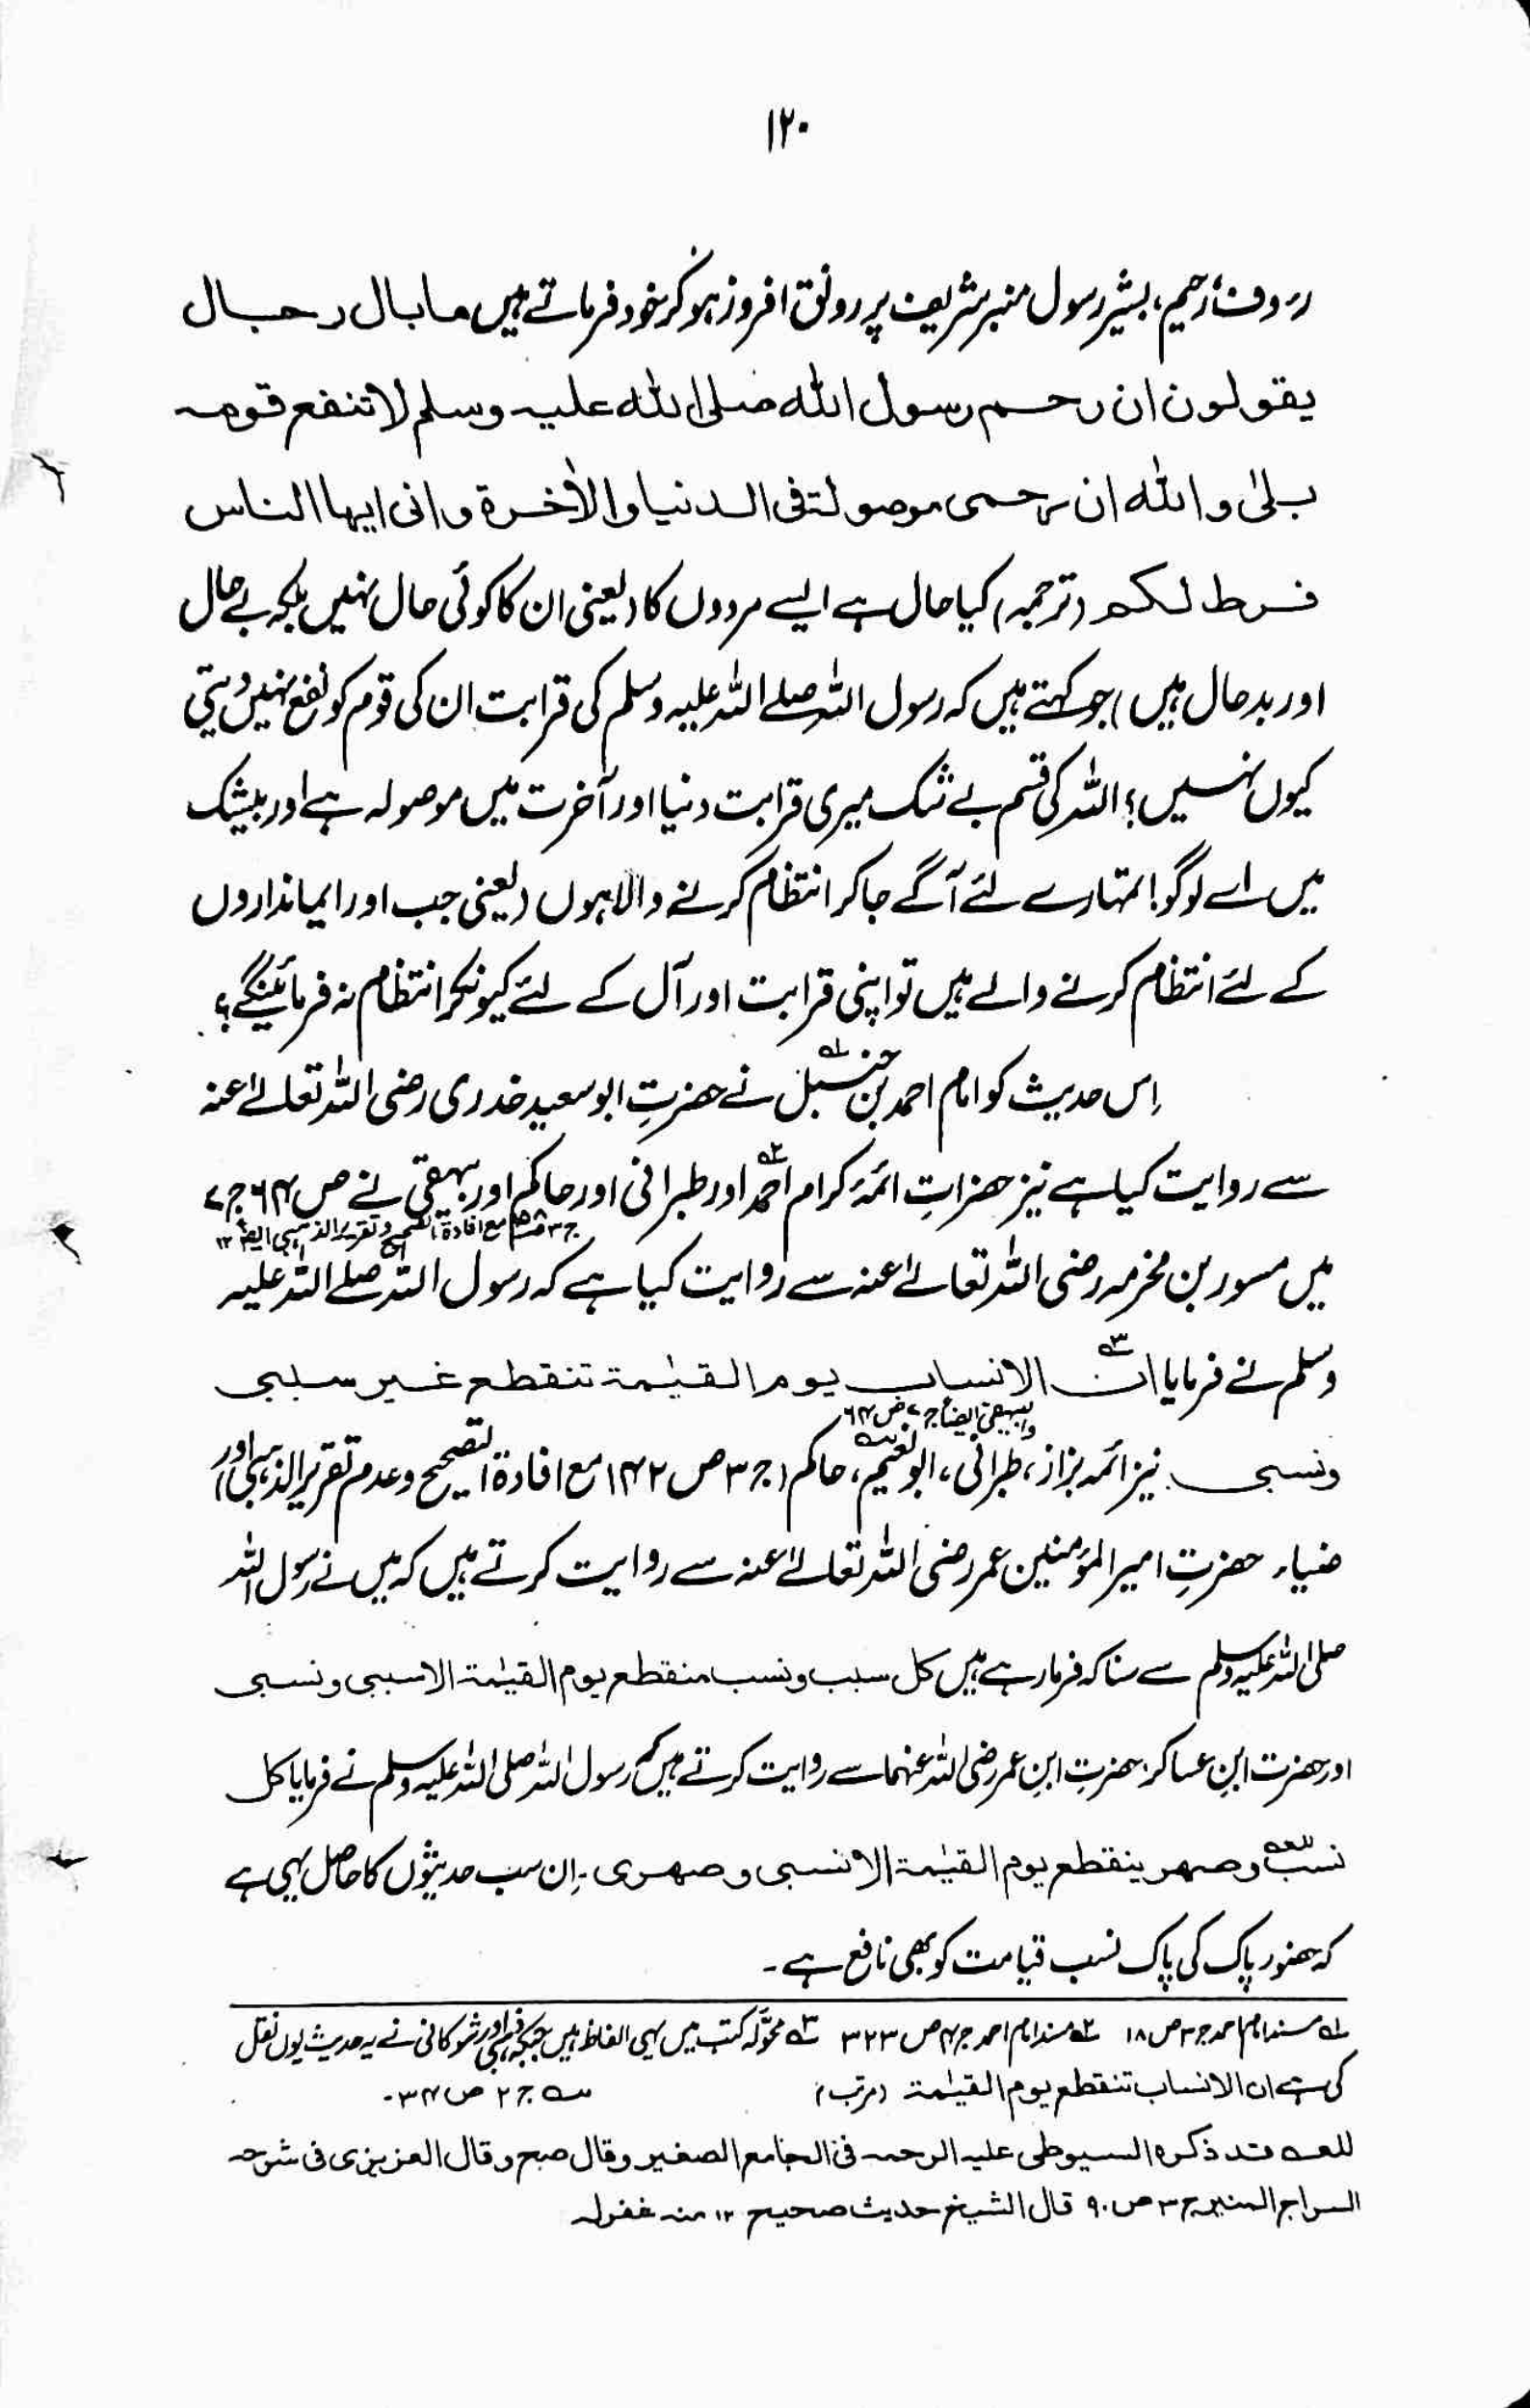 ۱۲۰
رءوف رحیم، بشیر رسول منبر شریف پر رونق افروز ہوکر خود فرماتے ہیں ما بال رجال
یقولون ان رحم رسول اللہ صلی اللہ علیہ وسلم لا تنفع قومہ
بلیٰ واللہ ان رحمی موصولۃ فی الدنیا والاٰخرۃ وانی ایہا الناس
فرط لکم (ترجمہ) کیا حال ہے ایسے مردوں کا (یعنی ان کا کوئی حال نہیں بلکہ بے حال
اور بدحال ہیں) جو کہتے ہیں کہ رسول اللہ صلے اللہ علیہ وسلم کی قرابت ان کی قوم کو نفع نہیں دیتی
کیوں نہیں؟ اللہ کی قسم بے شک میری قرابت دنیا اور آخرت میں موصولہ ہے اور بیشک
میں اے لوگو! تمہارے لئے آگے جاکر انتظام کرنے والا ہوں (یعنی جب اور ایمانداروں
کے لئے انتظام کرنے والے ہیں تو اپنی قرابت اور آل کے لئے کیونکر انتظام نہ فرمائینگے؟
اِس حدیث کو امام احمد بن حنبل ؎۱ نے حضرتِ ابوسعید خدری رضی اللہ تعالےٰ عنہ
سے روایت کیا ہے نیز حضراتِ ائمۂ کرام احمد ؎۲ اور طبرانی اور حاکم اور بیہقی نے ص ۶۴ ج ۷
ج ۳ مع افادۃ التصحیح و تقریر الذہبی ایضاً ۱۲
میں مسور بن مخرمہ رضی اللہ تعالےٰ عنہ سے روایت کیا ہے کہ رسول اللہ صلے اللہ علیہ
وسلم نے فرمایا ان ؎۳ الانساب یوم القیٰمۃ تنقطع غیر سببی
والبیہقی ایضاً ج ۷ ص ۶۴
ونسبی۔ نیز ائمہ بزاز، طبرانی، ابونعیم، حاکم (ج ۳ ص ۱۴۲ مع افادۃ التصحیح وعدم تقریر الذہبی) اور
ضیاء حضرتِ امیر المؤمنین عمر رضی اللہ تعالےٰ عنہ سے روایت کرتے ہیں کہ میں نے رسول اللہ
صلی اللہ علیہ وسلم سے سنا کہ فرمارہے ہیں کل سبب ونسب منقطع یوم القیٰمۃ الا سببی ونسبی
اور حضرت ابنِ عساکر، حضرتِ ابنِ عمر رضی اللہ عنہما سے روایت کرتے ہیں کہ رسول اللہ صلی اللہ علیہ وسلم نے فرمایا کل
نسب للعہ وصہر ینقطع یوم القیٰمۃ الا نسبی وصہری۔ اِن سب حدیثوں کا حاصل یہی ہے
کہ حضور پاک کی پاک نسب قیامت کو بھی نافع ہے۔
؎۱ مسند امام احمد ج ۳ ص ۱۸ ؎۲ مسند امام احمد ج ۴ ص ۳۲۳ ؎۳ محوّلہ کتب میں یہی الفاظ ہیں جبکہ ذہبی اور شوکانی نے یہ حدیث یوں نقل
کی ہے ان الانساب تنقطع یوم القیٰمۃ (مرتب) سہ ج ۲ ص ۳۴۔
للعہ قد ذکرہ السیوطی علیہ الرحمہ فی الجامع الصغیر وقال صح وقال العزیزی فی شرحہ
السراج المنیر ج ۳ ص ۹۰ قال الشیخ حدیث صحیح ۱۲ منہ غفرلہ